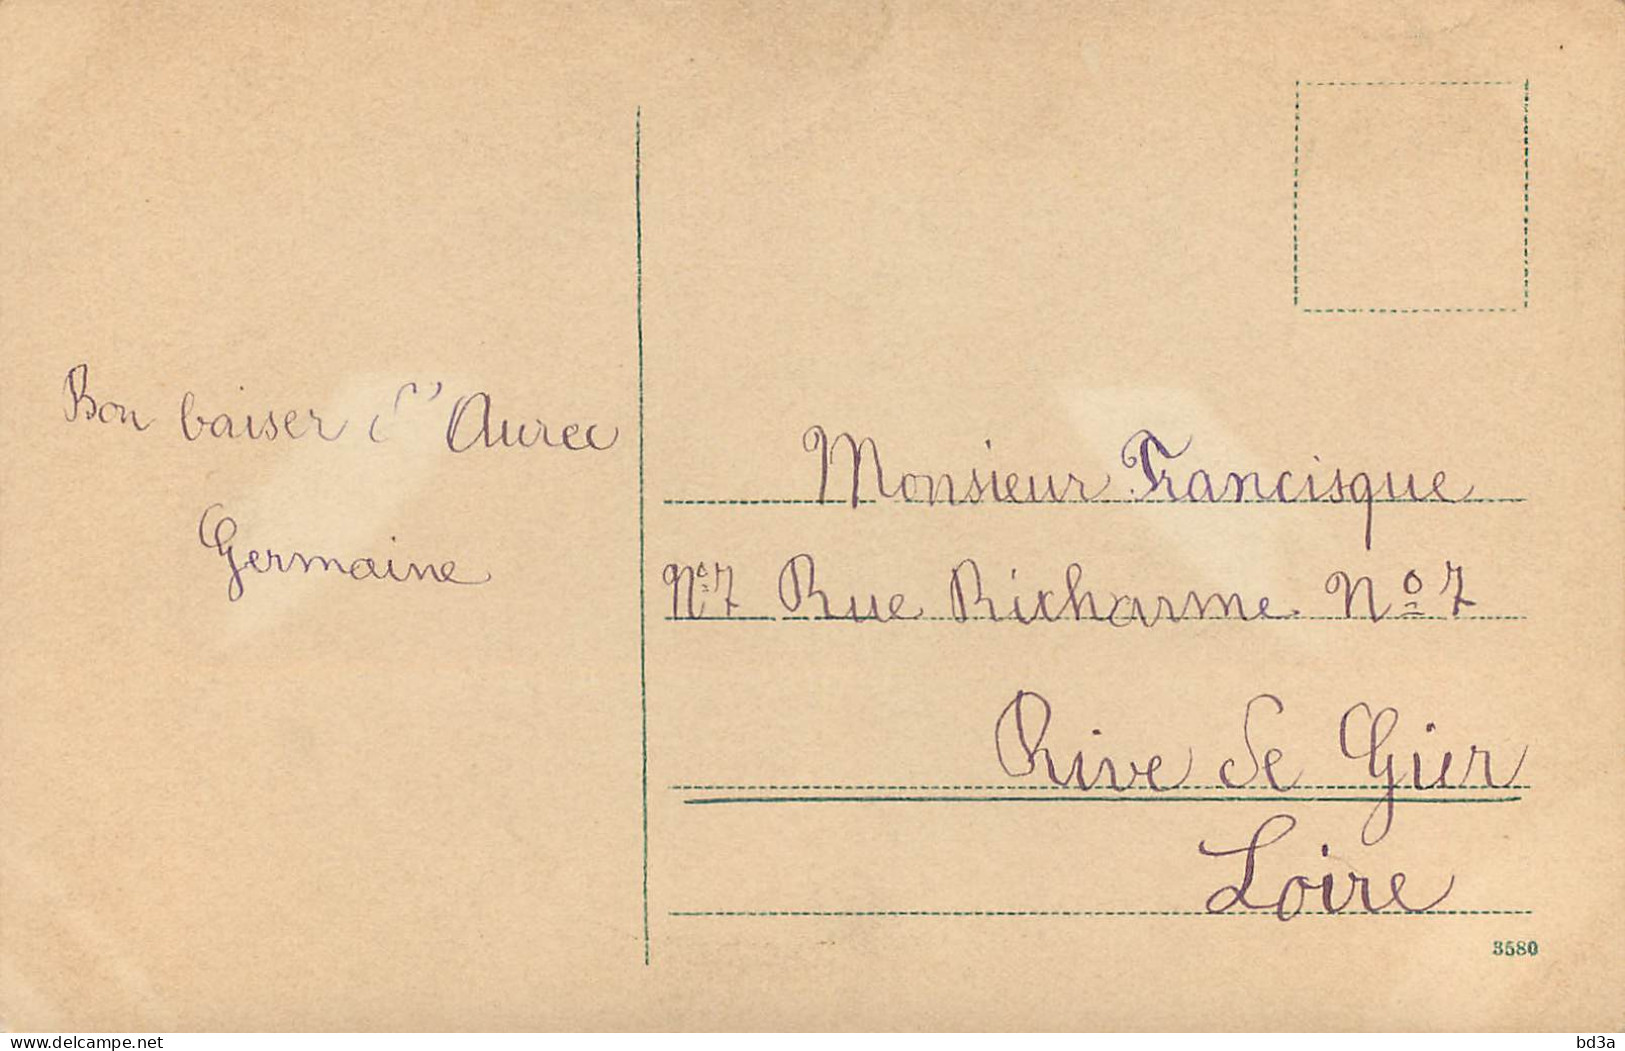 Bon baiser d'Aurec
Germaine
Monsieur Francisque
Nº 7 Rue Richarme Nº 7
Rive de Gier
Loire
3580
delcampe.net
bd3a